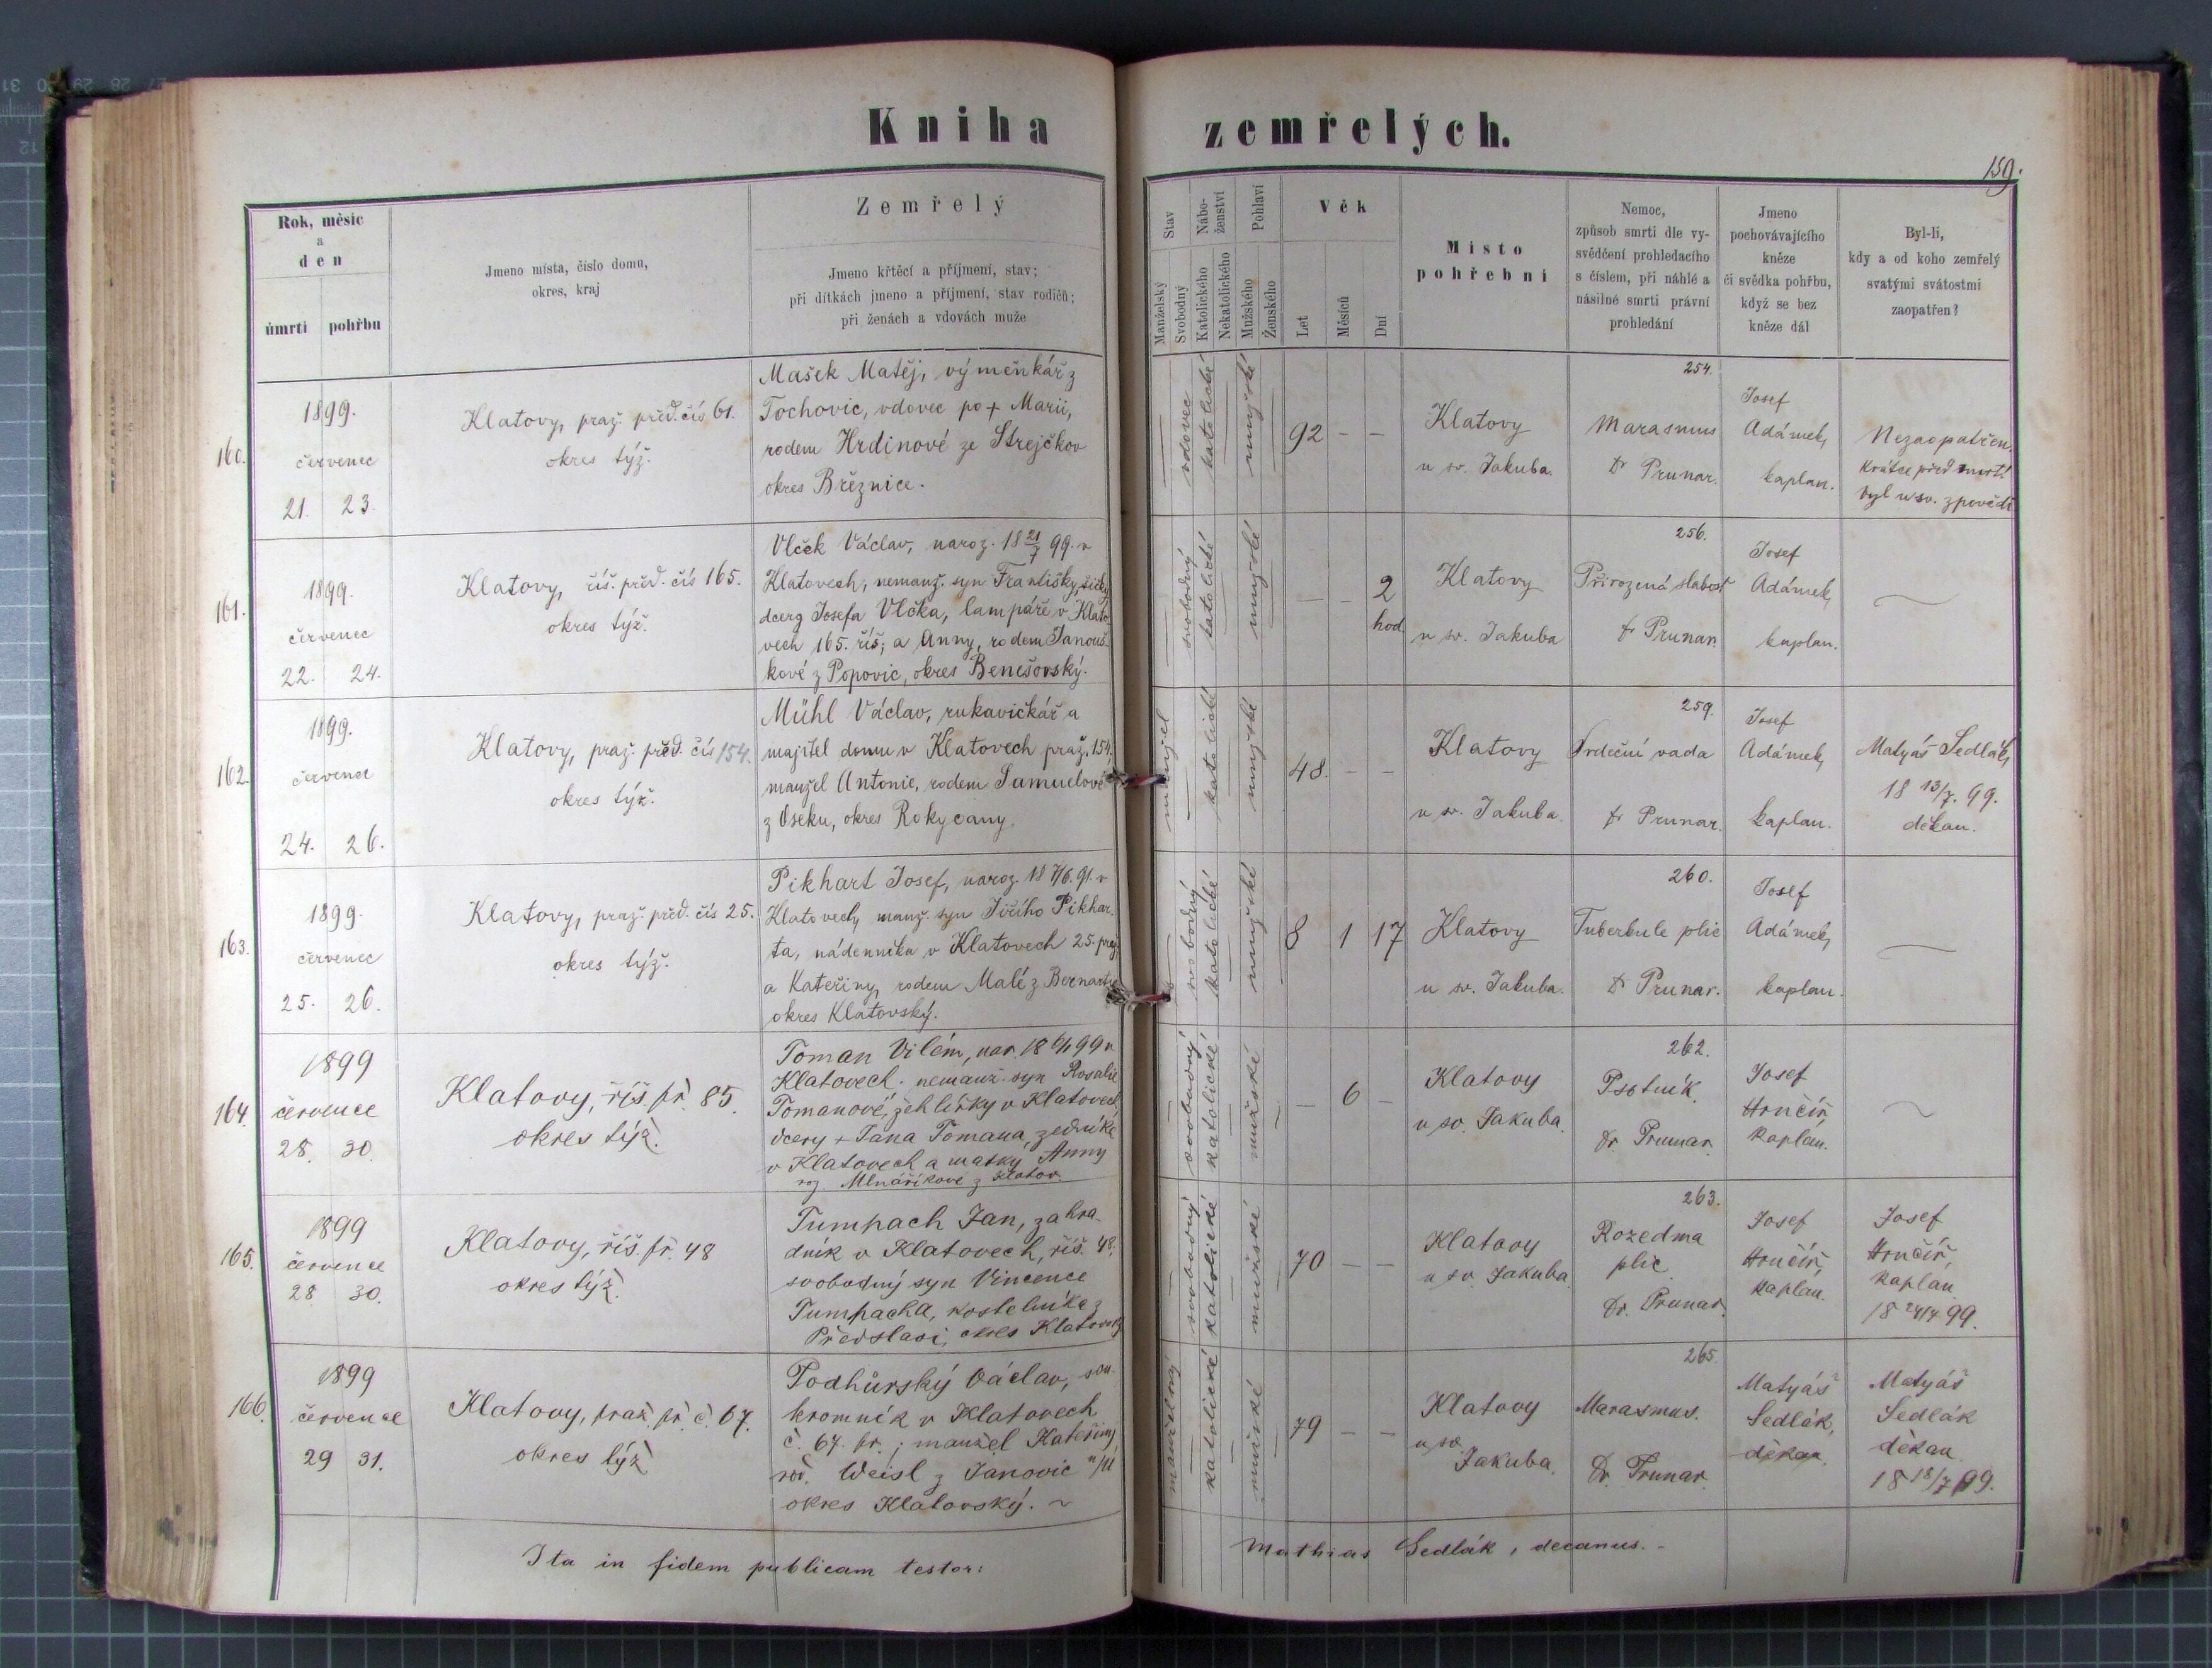 Kniha zemřelých.
159.
Rok, měsíc
a
den
úmrtí pohřbu
Jmeno místa, číslo domu,
okres, kraj
Zemřelý
Jmeno křtěcí a příjmení, stav;
při dítkách jmeno a příjmení, stav rodičů;
při ženách a vdovách muže
Stav
Manželský
Svobodný
Nábo-
ženství
Katolického
Nekatolického
Pohlaví
Mužského
Ženského
Věk
Let
Měsíců
Dní
Místo
pohřební
Nemoc,
způsob smrti dle vy-
svědčení prohledacího
s číslem, při náhlé a
násilné smrti právní
prohledání
Jmeno
pochovávajícího
kněze
či svědka pohřbu,
když se bez
kněze dál
Byl-li,
kdy a od koho zemřelý
svatými svátostmi
zaopatřen?
160.
1899.
červenec
21. 23.
Klatovy, praž. před. čís 61.
okres týž.
Mašek Matěj, výměnkář z
Tochovic, vdovec po + Marii,
rodem Hrdinové ze Strejčkov
okres Březnice.
vdovec
katolické
mužské
92 - -
Klatovy
u sv. Jakuba.
254.
Marasmus
Dr Prunar.
Josef
Adámek,
kaplan.
Nezaopatřen.
Krátce před smrtí
byl u sv. zpovědi
161.
1899.
červenec
22. 24.
Klatovy, říš. před. čís 165.
okres týž.
Vlček Václav, naroz. 18 21/7 99. v
Klatovech, nemanž. syn Františky, šičky
dcery Josefa Vlčka, lampáře v Klato-
vech 165. říš; a Anny, rodem Janouš-
kové z Popovic, okres Benešovský.
svobodný
katolické
mužské
- - 2
hod.
Klatovy
u sv. Jakuba
256.
Přirozená slabost
Dr Prunar.
Josef
Adámek,
kaplan.
162.
1899.
červenec
24. 26.
Klatovy, praž. před. čís 154.
okres týž.
Mühl Václav, rukavičkář a
majitel domu v Klatovech praž. 154,
manžel Antonie, rodem Samuelové
z Oseku, okres Rokycany.
manžel
katolické
mužské
48. - -
Klatovy
u sv. Jakuba.
259.
Srdeční vada
Dr Prunar.
Josef
Adámek,
kaplan.
Matyáš Sedlák,
18 13/7. 99.
děkan.
163.
1899.
červenec
25. 26.
Klatovy, praž. před. čís 25.
okres týž.
Pikhart Josef, naroz. 18 7/6. 91. v
Klatovech, manž. syn Jiřího Pikhar-
ta, nádenníka v Klatovech 25. praž.
a Kateřiny, rodem Malé z
okres Klatovský.
svobodný
katolické
mužské
8 1 17
Klatovy
u sv. Jakuba.
260.
Tuberkule plic
Dr Prunar.
Josef
Adámek,
kaplan.
164.
1899
července
28. 30.
Klatovy, říš. př. 85.
okres týž.
Toman Vilém, nar. 18 99 v
Klatovech. nemanž. syn Rosalie
Tomanové, žehlířky v Klatovech,
dcery + Jana Tomana, zedníka
v Klatovech a matky Anny
roz. Mlnaříkové z Klatov.
svobodný
katolické
mužské
- 6 -
Klatovy
u sv. Jakuba.
262.
Psotník.
Dr. Prunar.
Josef
Hrnčíř,
kaplan.
165.
1899
července
28 30.
Klatovy, říš. př. 48
okres týž.
Tumpach Jan, zahra-
dník v Klatovech, říš. 48,
svobodný syn Vincence
Tumpacha, kostelníka z
Předslavi, okres Klatovský
svobodný
katolické
mužské
70 - -
Klatovy
u sv. Jakuba.
263.
Rozedma
plic
Dr. Prunar.
Josef
Hrnčíř,
kaplan.
Josef
Hrnčíř,
kaplan
18 24/7 99.
166.
1899
července
29 31.
Klatovy, praž. př. č. 67.
okres týž.
Podhůrský Václav, sou-
kromník v Klatovech
č. 67. pr.; manžel Kateřiny
roz. Weisl z Janovic n/U
okres Klatovský. ~
manželský
katolické
mužské
79 - -
Klatovy
u sv.
Jakuba.
265.
Marasmus.
Dr. Prunar.
Matyáš
Sedlák,
děkan.
Matyáš
Sedlák
děkan
18 18/7 99.
Ita in fidem publicam testor:
Mathias Sedlák, decanus. -